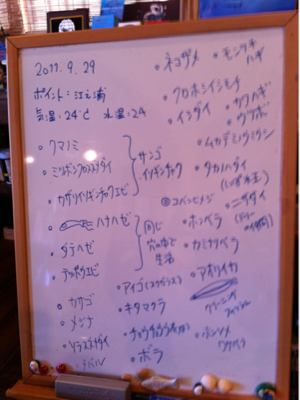 2011.9.29
ポイント:江之浦
気温:24℃ 水温:24
クマノミ
ミツボシクロスズメダイ
カザリイソギンチャクエビ
サンゴ
イソギンチャク
ハナハゼ
ダテハゼ
テッポウエビ
同じ
穴の中で
生活
カサゴ
メジナ
ソラスズメダイ
メバル
アイゴ
キタマクラ
チョウチョウウオ
ボラ
ネコザメ
クロホシイシモチ
イシダイ
ムカデミノウミウシ
タカノハダイ
コバンヒメジ
ニザダイ
ホンベラ
カミナリベラ
アオリイカ
クリーニング
ホンソメ
ワケベラ
モンツキ
ハギ
カワハギ
ウツボ